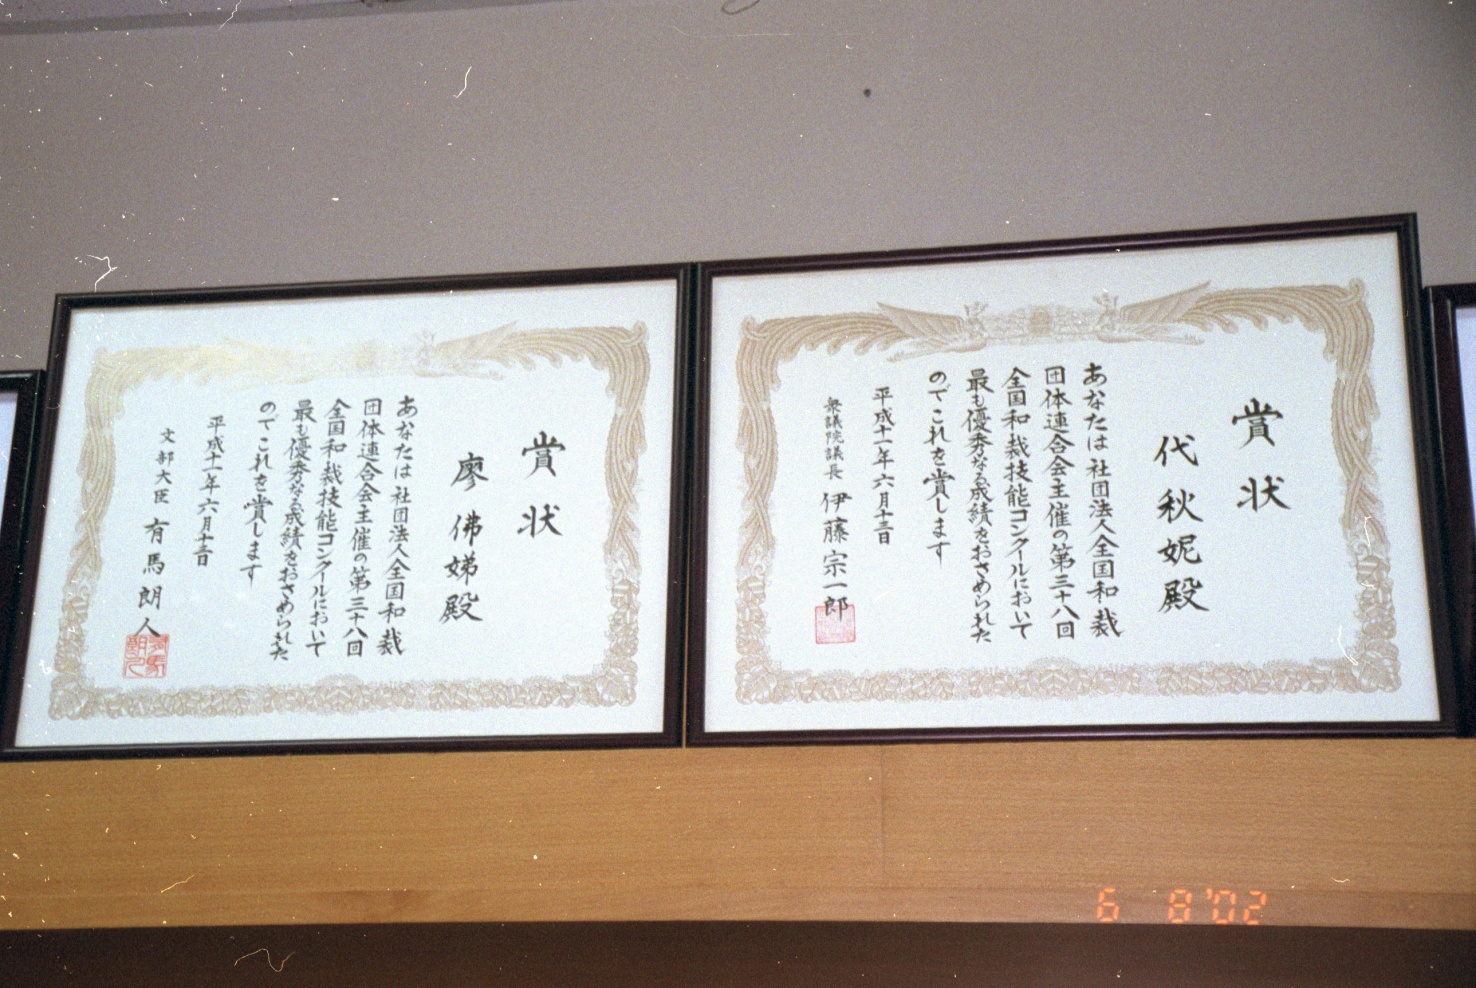 賞状
代秋妮殿
あなたは社団法人全国和裁
団体連合会主催の第三十八回
全国和裁技能コンクールにおいて
最も優秀なる成績をおさめられた
のでこれを賞します
平成十一年六月十三日
衆議院議長 伊藤宗一郎
賞状
廖佛娣殿
あなたは社団法人全国和裁
団体連合会主催の第三十八回
全国和裁技能コンクールにおいて
最も優秀なる成績をおさめられた
のでこれを賞します
平成十一年六月十三日
文部大臣 有馬朗人
6 8'02